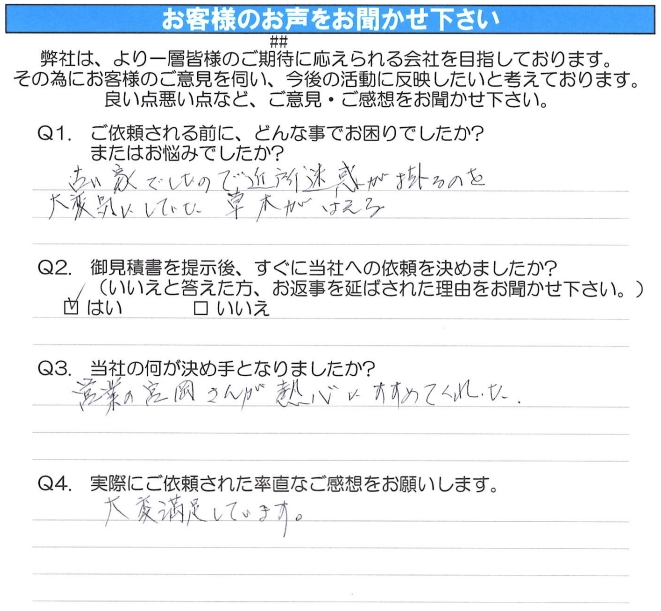 お客様のお声をお聞かせ下さい
##
弊社は、より一層皆様のご期待に応えられる会社を目指しております。
その為にお客様のご意見を伺い、今後の活動に反映したいと考えております。
良い点悪い点など、ご意見・ご感想をお聞かせ下さい。
Q1. ご依頼される前に、どんな事でお困りでしたか?
またはお悩みでしたか?
古い家でしたので近所迷惑が掛るのを
大変気にしていた 草木がはえる
Q2. 御見積書を提示後、すぐに当社への依頼を決めましたか?
（いいえと答えた方、お返事を延ばされた理由をお聞かせ下さい。）
☑ はい □ いいえ
Q3. 当社の何が決め手となりましたか?
営業の宮岡さんが熱心にすすめてくれた.
Q4. 実際にご依頼された率直なご感想をお願いします。
大変満足しています。